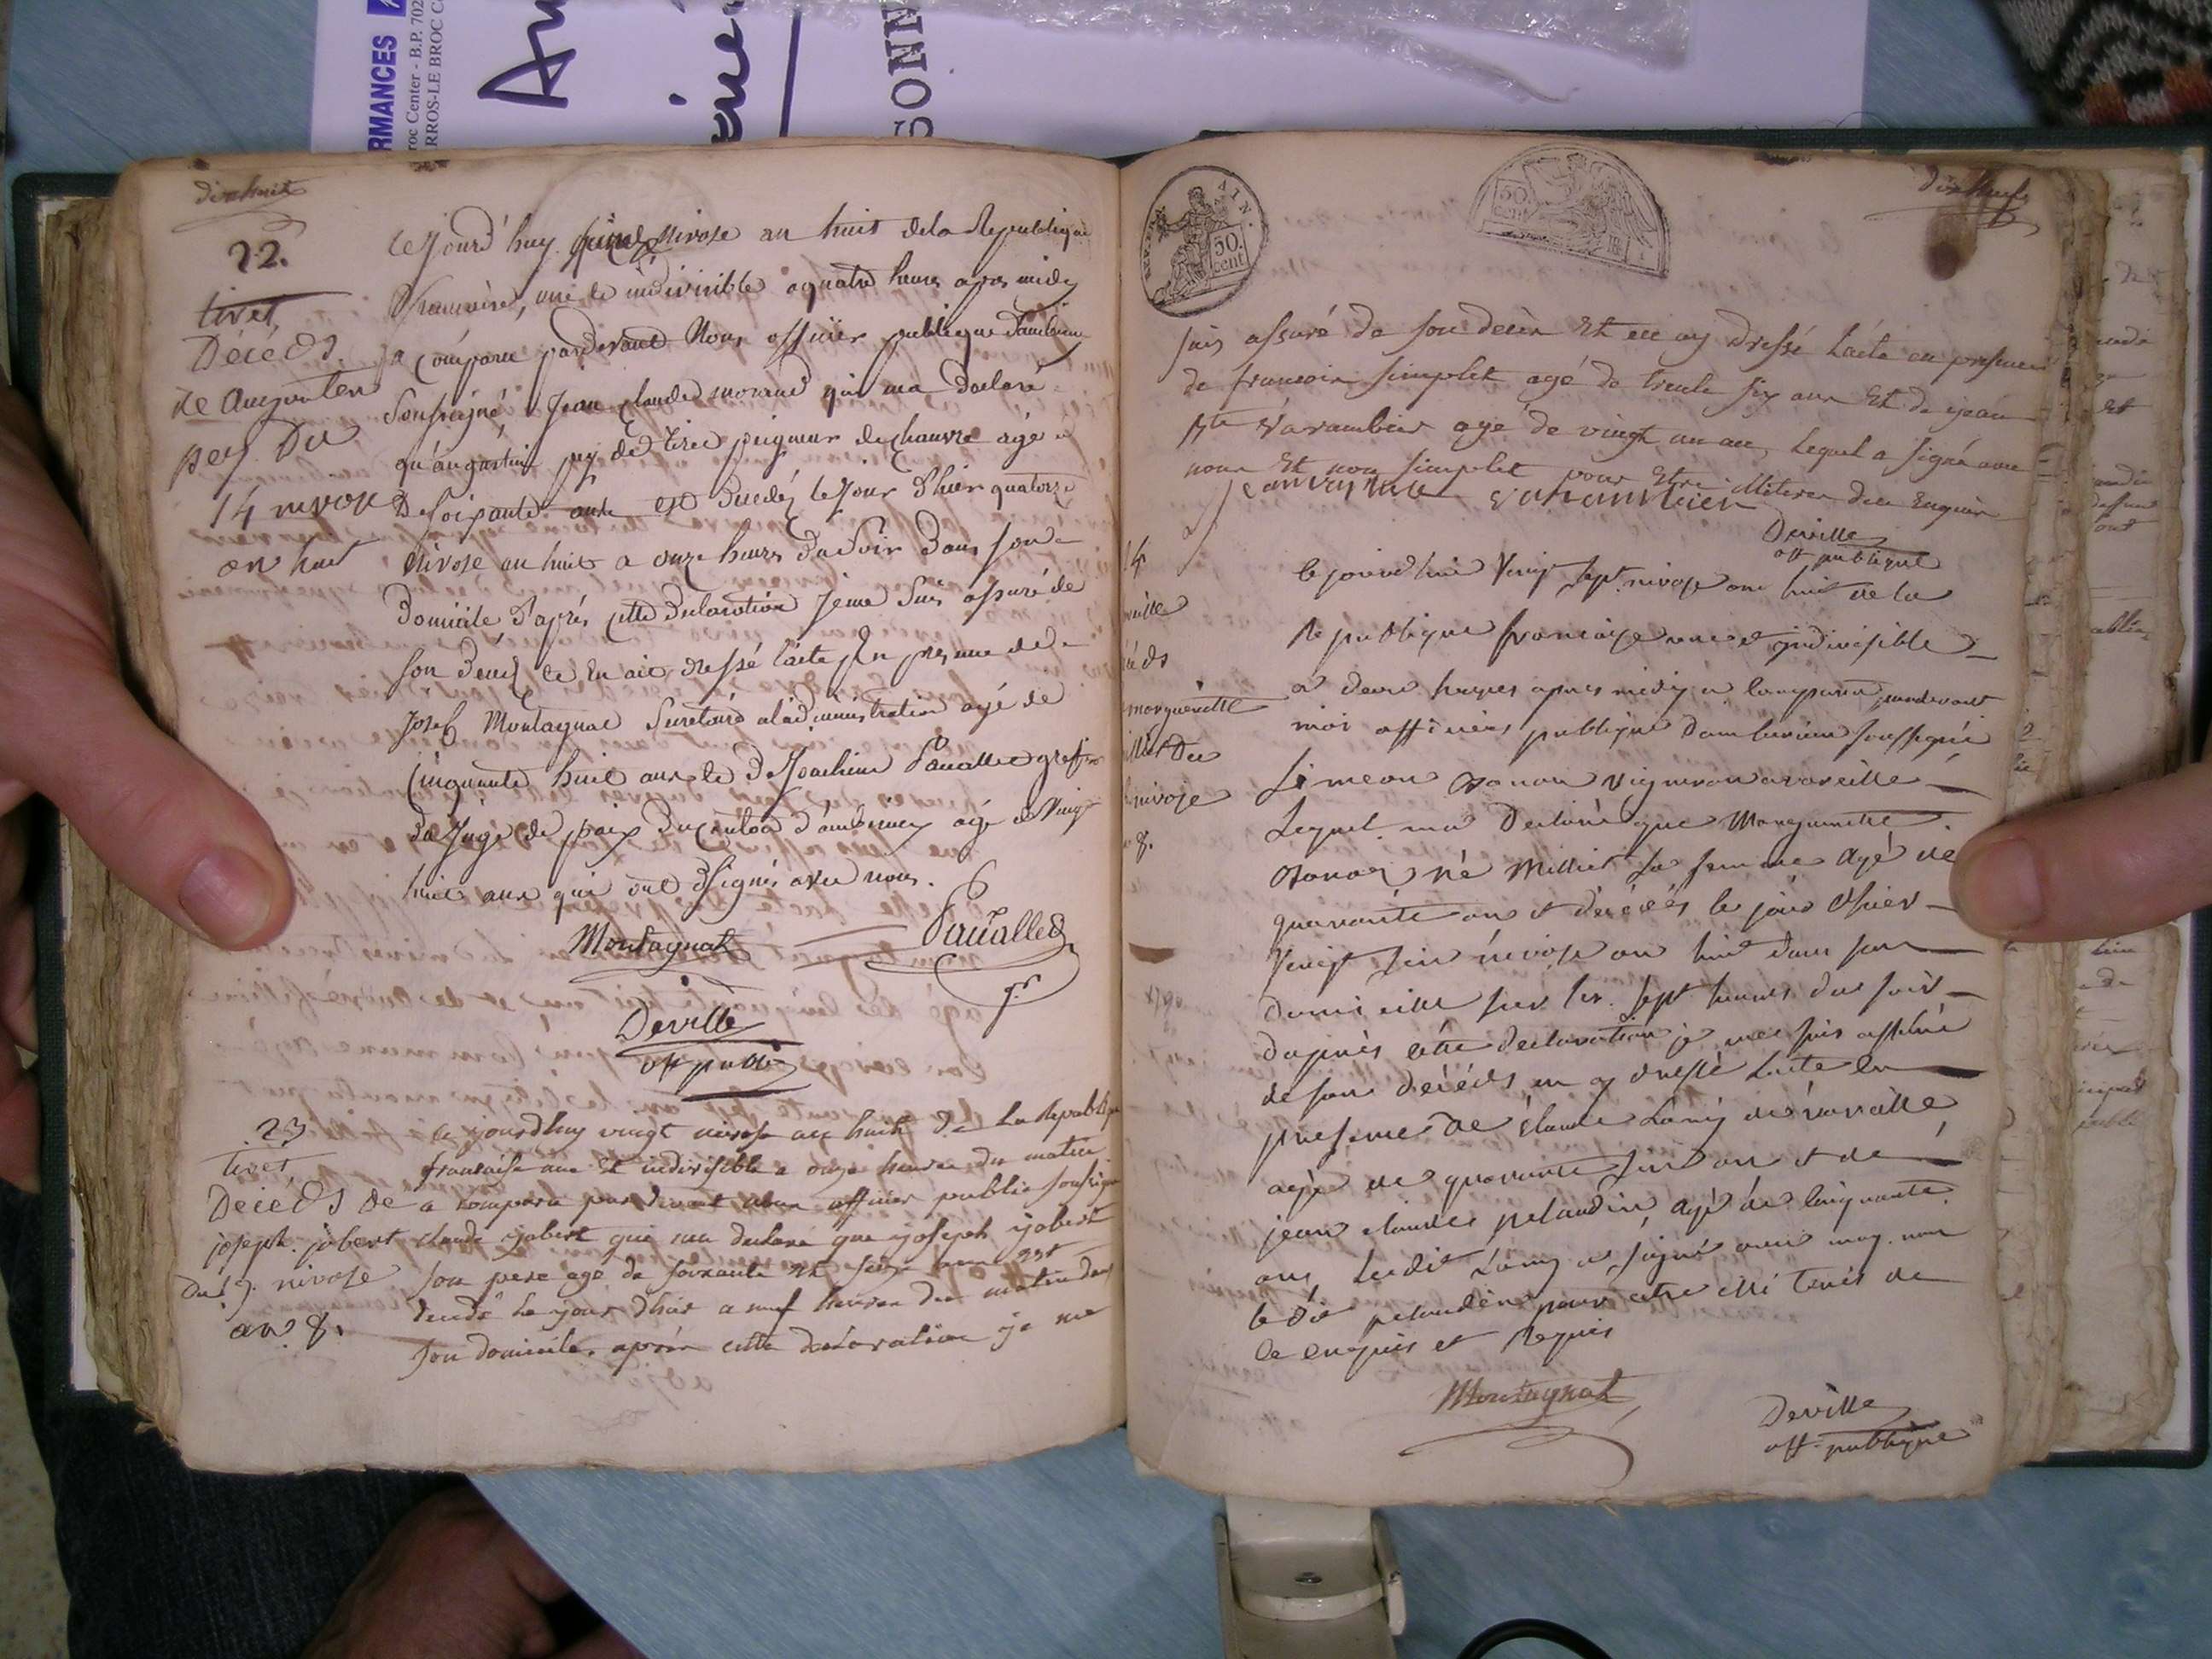 RMANCES
roc Center - B.P. 702
RROS-LE BROC C
An
SONN
dixhuit
22.
tiret
Décéds
de Augustin
pey Du
14 nivose
an huit
Cejourd'huy quinze Nivose an huit dela Republique
francaise, une et indivisible a quatre heures apres midy
a comparu pardevant Nous officier publique
soussigné, Jean Claude morand qui ma declaré
qu'augustin pey de tiret peigneur de chanvre agé
De soixante ans est decedéz le Jour d'hier quatorze
Nivose an huit a onze heures du Soir Dans son
Domicile D'aprés cette Declaration Jeme Suis assuré de
son Deced et En ait dressé l'acte En presence de
Josef Montagnat Secretaire aladministration agé de
Cinquante huit ans et De Joachim greffier
Du Juge de paix Du canton d'ambournay agé de Vingt
huit ans qui ont Signés avec nous.
Montagnat
Deville
off public
23
tiret
Décéds De
joseph jobert
Du 19. nivose
an 8.
Ce jourdhuy vingt nivose an huit De La Republique
francaise une Et indivisible a onze heure du matin
a comparu pardevant nous officier public sousigné
claude jobert qui ma declaré que joseph jobert
son pere agé de soixante Et seize ans est
decedé Le jour Dhier a neuf heures du matin dans
son domicile, aprés cette declaration je me
dixneuf
AIN.
50.
cent
50
cent
suis assuré de son décès Et en ay dressé Lacte en presence
de francois simplet agé de trente six ans Et de jean
Bte Varambier agé de vingt un an, Lequel a signé avec
nous Et non simplet pour Etre illiteré dece Enquis
Varambier
Deville
off publique
marguerite
Du
nivose
8.
le jourdhui Vingt sept nivose an huit de la
Republique francaise une et indivisible
a deux heures apres midy a comparu pardevant
moi officiers publique soussigné
Simeon vigneron a vareille
Lequel ma Declaré que Marguerite
né Milliet sa femme Agé de
quarante an et décédés le jour d'hier
Vingt six nivose an huit dans son
domicille sur les sept heures du soir
dapres cette declaration je me suis assuré
de son décéds en ay dressé Lacte En
presence De Claude Lamy de varaille
agée de quarante six an et de
jean claude pelaudin, agé de cinquante
ans, Ledit Lamy a signé avec moy non
le dit pelaudin pour être illi terés de
ce enquis et Requis
Montagnat
Deville
off publique